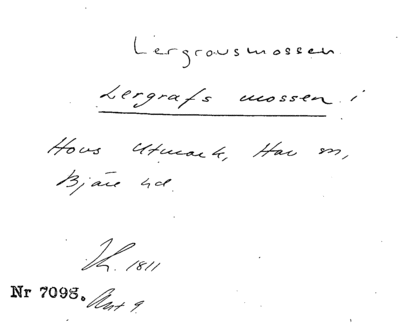 Lergravsmossen
Lergrafs mossen i
Hovs Utmark, Hov sn,
Bjäre hd.
1811
Nr 7098. Akt 9.